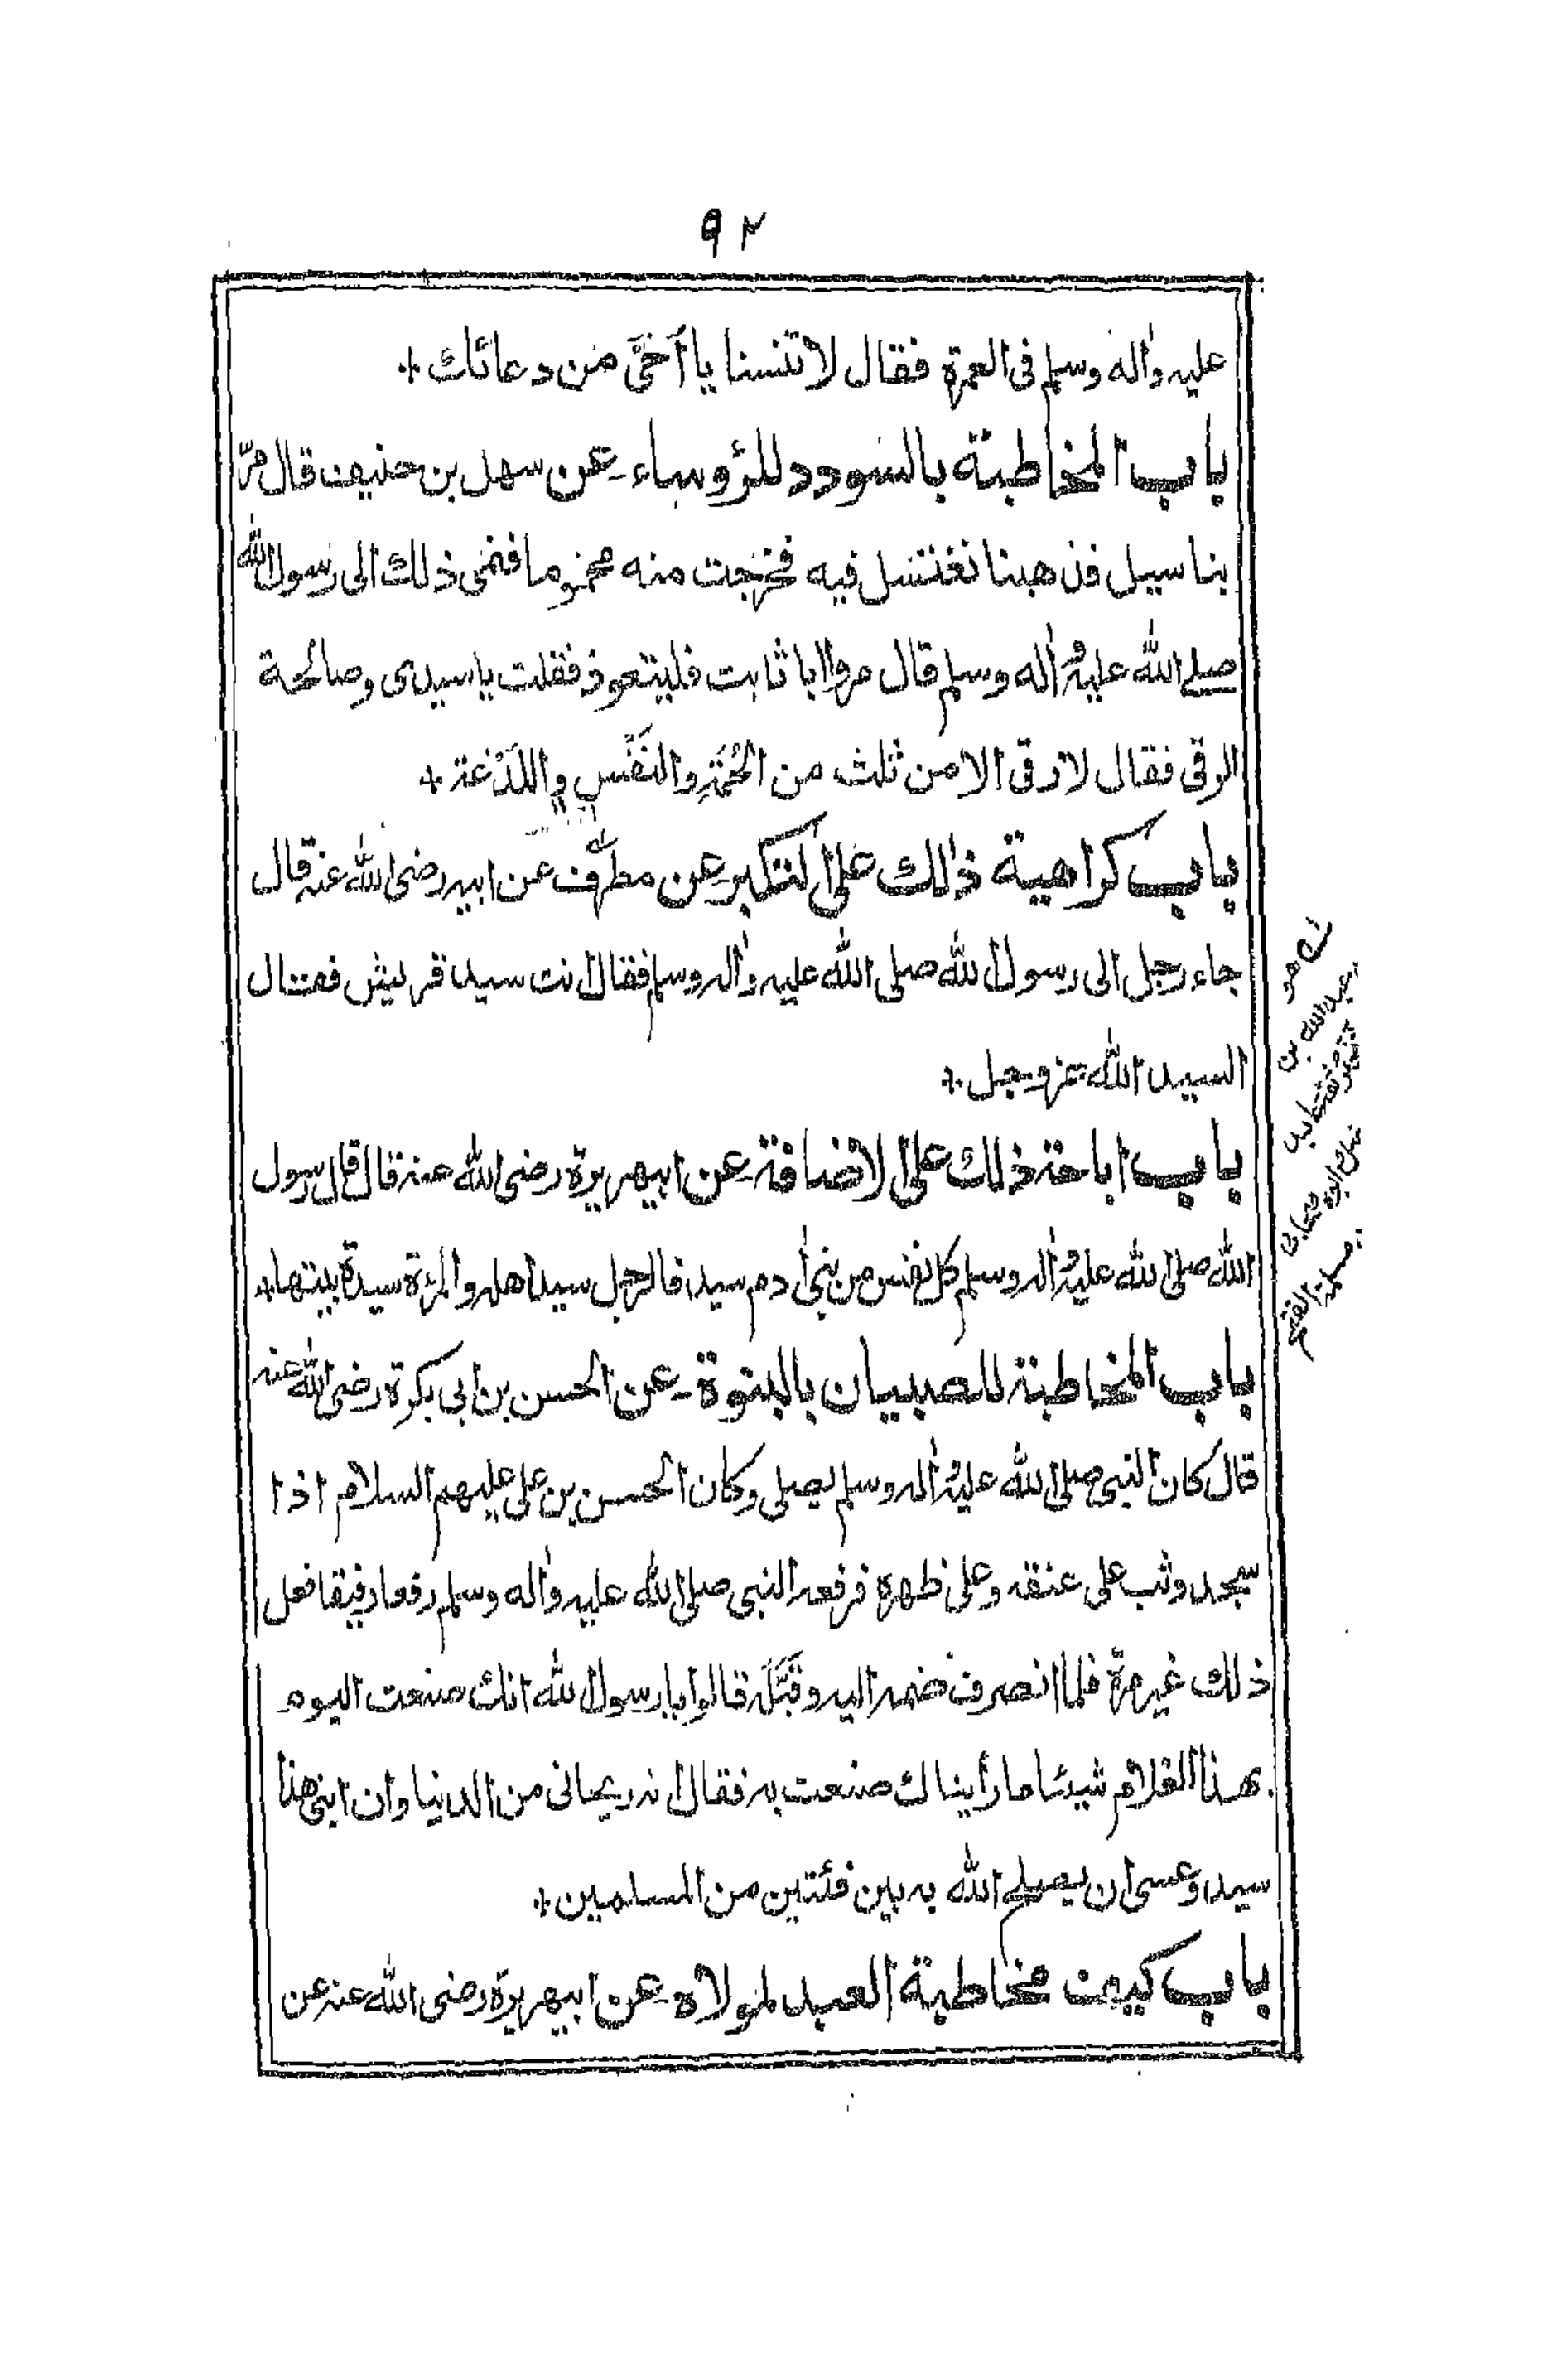 ٩٢
عليه واٰله وسلم فى العمرة فقال لا تنسنا يا اُخَىَّ من دعائك +
باب المخاطبة بالسودد للرؤساء۔ عن سهل بن حنيف قال مرّ
بنا سيل فذهبنا نغتسل فيه فخرجت منه محموما فنمى ذلك الى رسول الله
صلے الله عليه واٰله وسلم قال مروا ابا ثابت فليتعوذ فقلت يا سيدى وصالحة
الرقى فقال لا رقى الا من ثلث من الحُمَةِ والنَفْسِ واللَدْغة +
باب كراهية ذٰلك على التكبر۔ عن مطرّف عن ابيه رضى الله عنه قال
جاء رجل الى رسول الله صلى الله عليه واٰله وسلم فقال انت سيد قريش فقال
السيد الله عز وجل +
باب اباحة ذلك على الاضافة۔ عن ابيهريرة رضى الله عنه قال قال رسول
الله صلى الله عليه واٰله وسلم كل نفس من بنى اٰدم سيد فالرجل سيد اهله والمرءة سيدة بيتها +
باب المخاطبة للصبيان بالبنوة۔ عن الحسن بن ابى بكرة رضى الله عنه
قال كان النبى صلى الله عليه واٰله وسلم يصلى وكان الحسن بن على عليهم السلام اذا
سجد وثب على عنقه وعلى ظهره فرفعه النبى صلى الله عليه واٰله وسلم رفعا رفيقا فعل
ذلك غير مرة فلما انصرف ضمه اليه وقَبَّلَه قالوا يا رسول الله انك صنعت اليوم
بهذا الغلام شيئا ما رأيناك صنعت به فقال انه ريحانى من الدنيا وان ابنى هذا
سيد وعسى ان يصلح الله به بين فئتين من المسلمين +
باب كيف مخاطبة العبد لمولاه۔ عن ابيهريرة رضى الله عنه عن
هو
عبد الله بن
صحابى
مسلمة الفتح